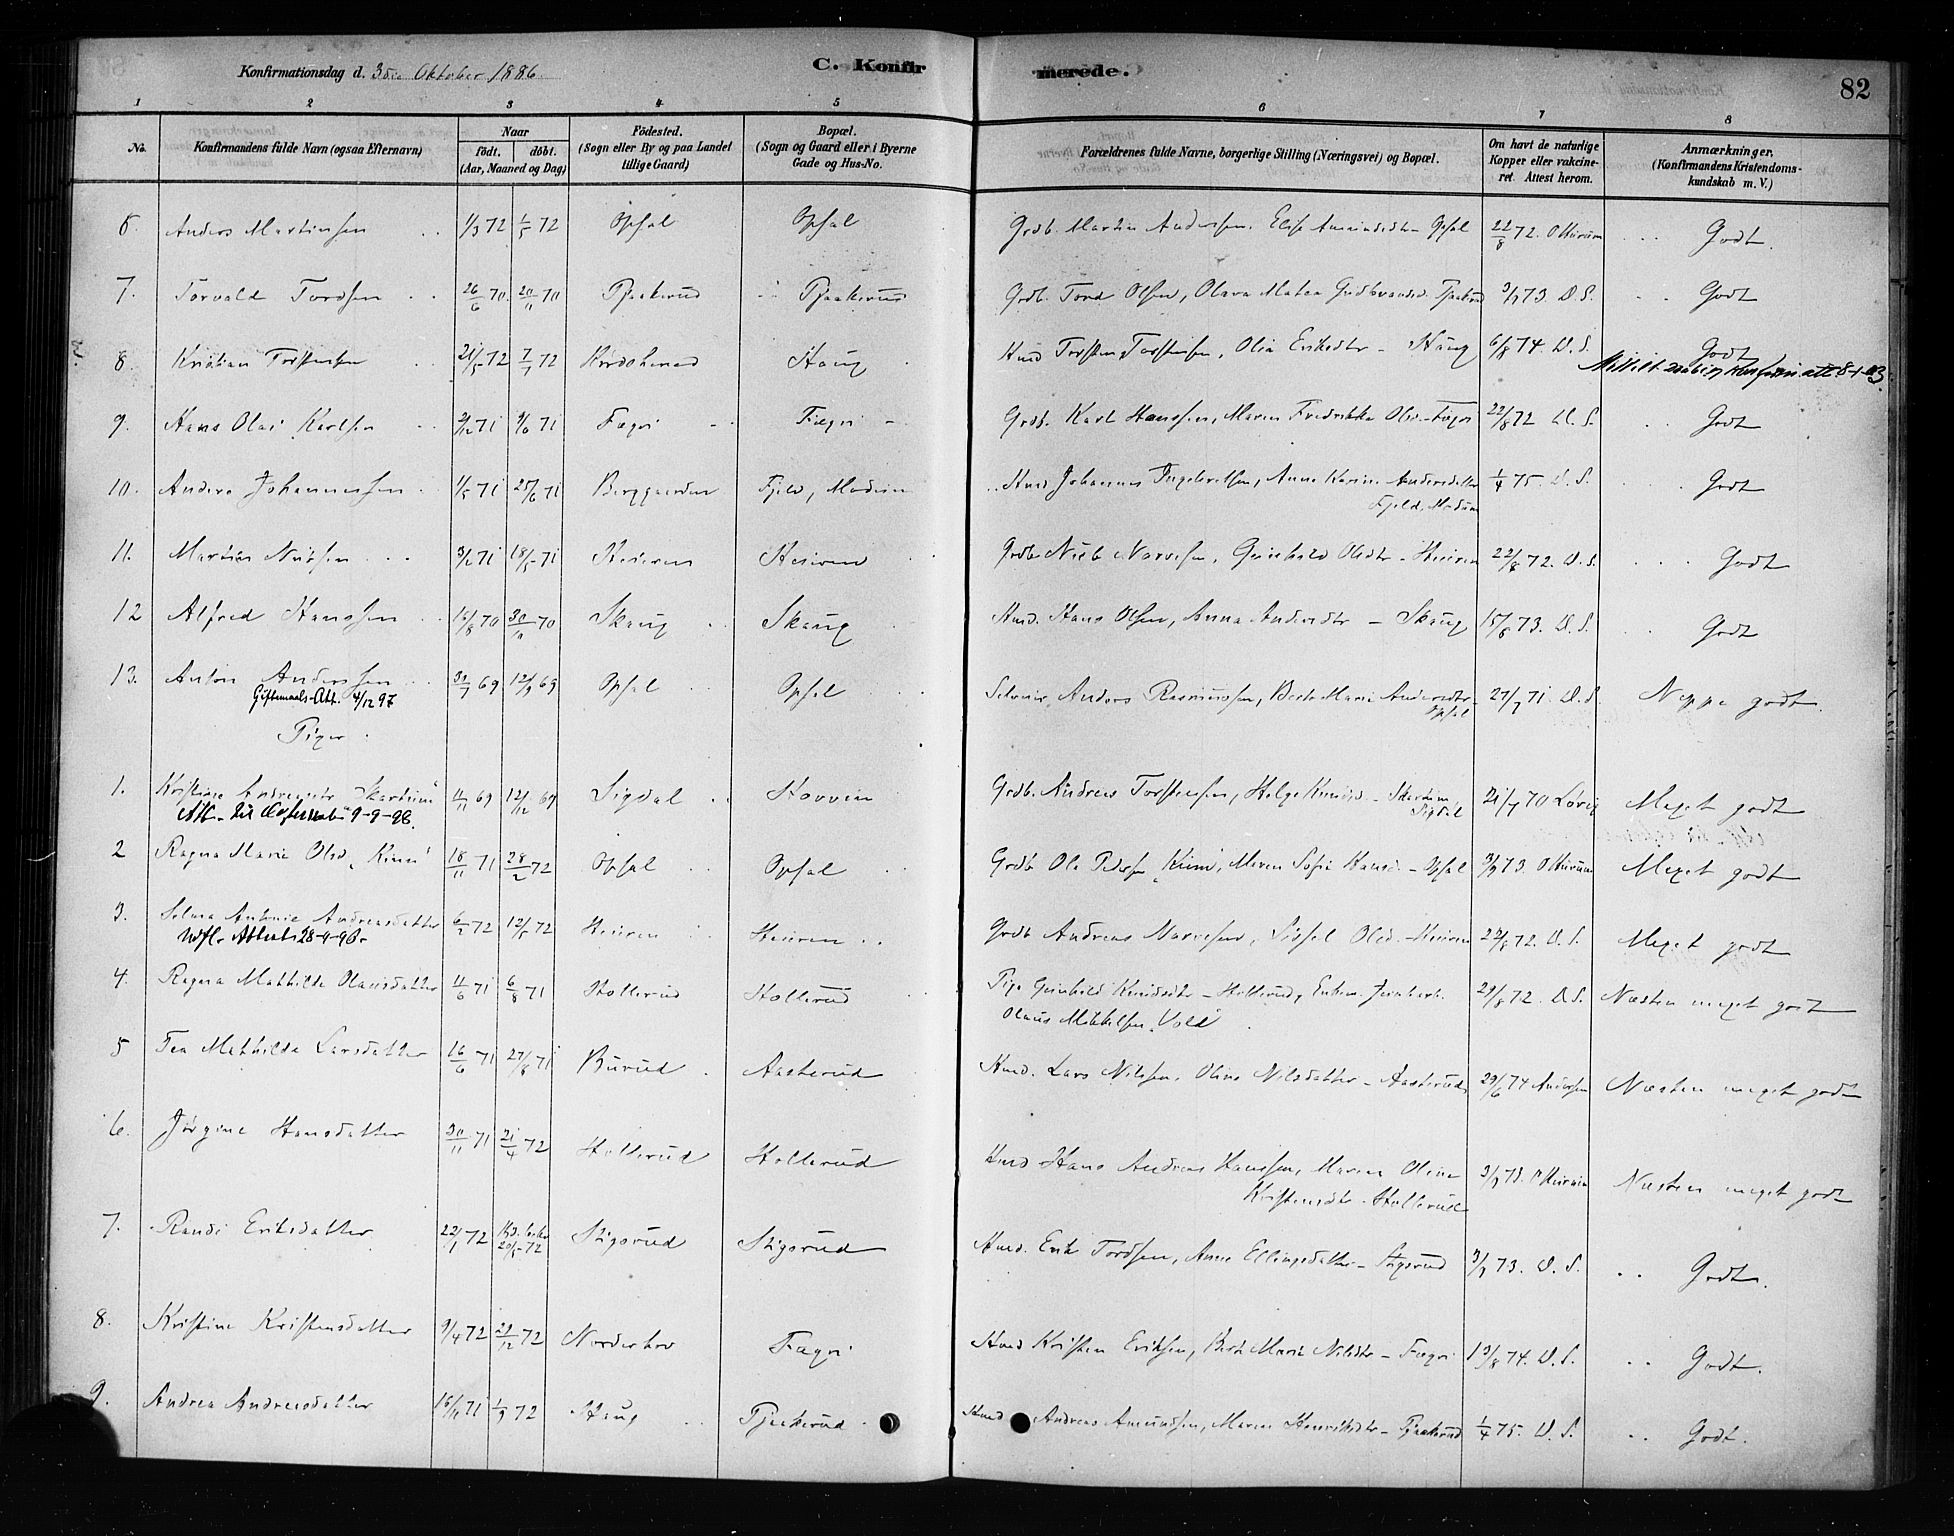 Konfirmationsdag d. 3die Oktober 1886.
C. Konfirmerede.
82
1 2 3 4 5 6 7 8
No. Konfirmandens fulde Navn (ogsaa Efternavn) Naar födt. döbt. (Aar, Maaned og Dag) Födested. (Sogn eller By og paa Landet tillige Gaard) Bopæl. (Sogn og Gaard eller i Byerne Gade og Hus-No. Forældrenes fulde Navne, borgerlige Stilling (Næringsvei) og Bopæl. Om havt de naturlige Kopper eller vakcineret. Attest herom. Anmærkninger, (Konfirmandens Kristendomskundskab m. V.)
6. Anders Martinsen 1/3 72 1/5 72 Opsal Opsal Grdb. Martin Andersen, Elise Amundsdtr - Opsal 22/8 72. Godt.
7. Torvald Tordsen 26/6 70. 20/11 70 Tjaakerud Tjaakerud Grdb. Tord Olsen, Olava Matea Gudbrandsd. Tjaakrud 3/9 73. D. S. Godt
8. Kristian Torstensen 21/5 72 7/7 72 Haug Hmd Torsten Torstensen, Olia Eriksdtr - Haug 6/8 74. D. S. Godt
9. Hans Olai Karlsen 71 71 Fægri Fægri Grdb. Karl Hanssen, Maren Fredrikke Olsd - Fægri 22/8 72 D. S. Godt
10. Anders Johannessen 1/5 71 25/6 71 Berggaarden Fjeld, Modum Hmd Johannes Ingebretsen, Anne Karine Andersdatter 1/4 75. D. S. Godt
Fjeld, Modum
11. Martin Nubsen 3/2 71 18/5 71 Heieren Heieren Grdb Nub Narvesen, Gunhild Olsdtr - Heieren 22/8 72. D. S. Godt
12 Alfred Hanssen 16/8 70 30/10 70 Skaug Skaug Hmd. Hans Olsen, Anna Andersdtr - Skaug 15/8 73. D. S. Godt
13. Anton Anderssen 30/7 69 12/9 69 Opsal Opsal Anders Rasmussen, Berte Marie Andersdtr - 27/7 71. D. S Neppe godt.
Giftemaals-Att. 4/12 97 Opsal
Piger.
1. Kristine Andreasdtr "Skartum" 11/11 69 12/12 69 Sigdal Hovven Grdb. Andreas Torstensen, Helge Knudsd - Skartum 21/7 70 Meget godt
Att. til 9-9-98. Sigdal
2 Ragna Marie Olsd "Kinn" 18/11 71 28/2 72 Opsal Opsal Grdb Ole Pedersen "Kinn", Maren Sofie Hansd. - Opsal 3/9 73. Meget godt
3. Selma Antonie Andreasdatter 6/2 72 12/5 72 Heieren Heieren Grdb Andreas Narvesen, Sissel Olsd. - Heieren 22/8 72. D. S. Meget godt
Udfl. Attest 28-4-96.
4. Ragna Mathilde Olausdatter 11/6 71 6/8 71 Hollerud Hollerud Pige Gunhild Knudsdtr - Hollerud, 29/8 72. D. S. Næsten meget godt
Olaus Mikkelsen "Vold"
5 Tea Mathilda Larsdatter 16/6 71 27/8 71 Burud Aasterud Hmd. Lars Nilsen, Oline Nilsdatter - Aasterud 29/6 74 Andersen Næsten meget godt
6. Jørgine Hansdatter 30/11 71 21/4 72 Hollerud Hollerud Hmd Hans Andreas Hanssen, Maren Oline 3/9 73. Næsten meget godt
Kristensdtr - Hollerud
7. Randi Eriksdatter 22/1 72 20/5 72 Stigsrud Stigsrud Hmd. Erik Tordsen, Anne Ellingsdatter - Stigsrud 3/9 73. D. S. Godt.
8. Kristine Kristensdatter 9/4 72 29/12 72 Norderhov Fægri Hmd Kristen Eriksen, Bert Marie Nilsdtr - Fægri 19/8 74. D. S. Godt.
9. Andrea Andreasdatter 16/11 71 1/9 72 Haug Tjaakerud Hmd Andreas Amundsen, Maren Henriksdtr - Tjaakerud 1/4 75. D. S. Godt.